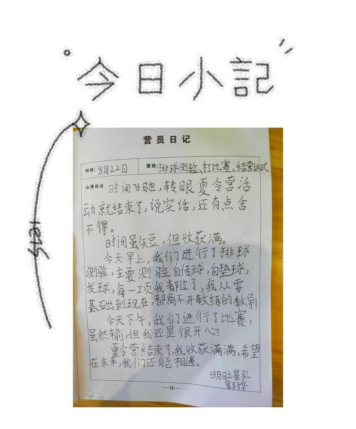 今日小記
营员日记
时间: 8月22日 课程: 排球测验、打比赛、结营仪式
心得体会 时间飞驰，转眼夏令营活
动就结束了，说实话，还有点舍
不得。
时间虽短，但收获满。
今天早上，我们进行了排球
测验，主要测验自传球，自垫球，
发球，每一项我都过了，我从零
基础到现在，都离不开教练的教导
今天下午，我们进行了比赛，
虽然输，但我还是很开心!
夏令营结束了，我收获满满，希望
在未来，我们还能相遇。